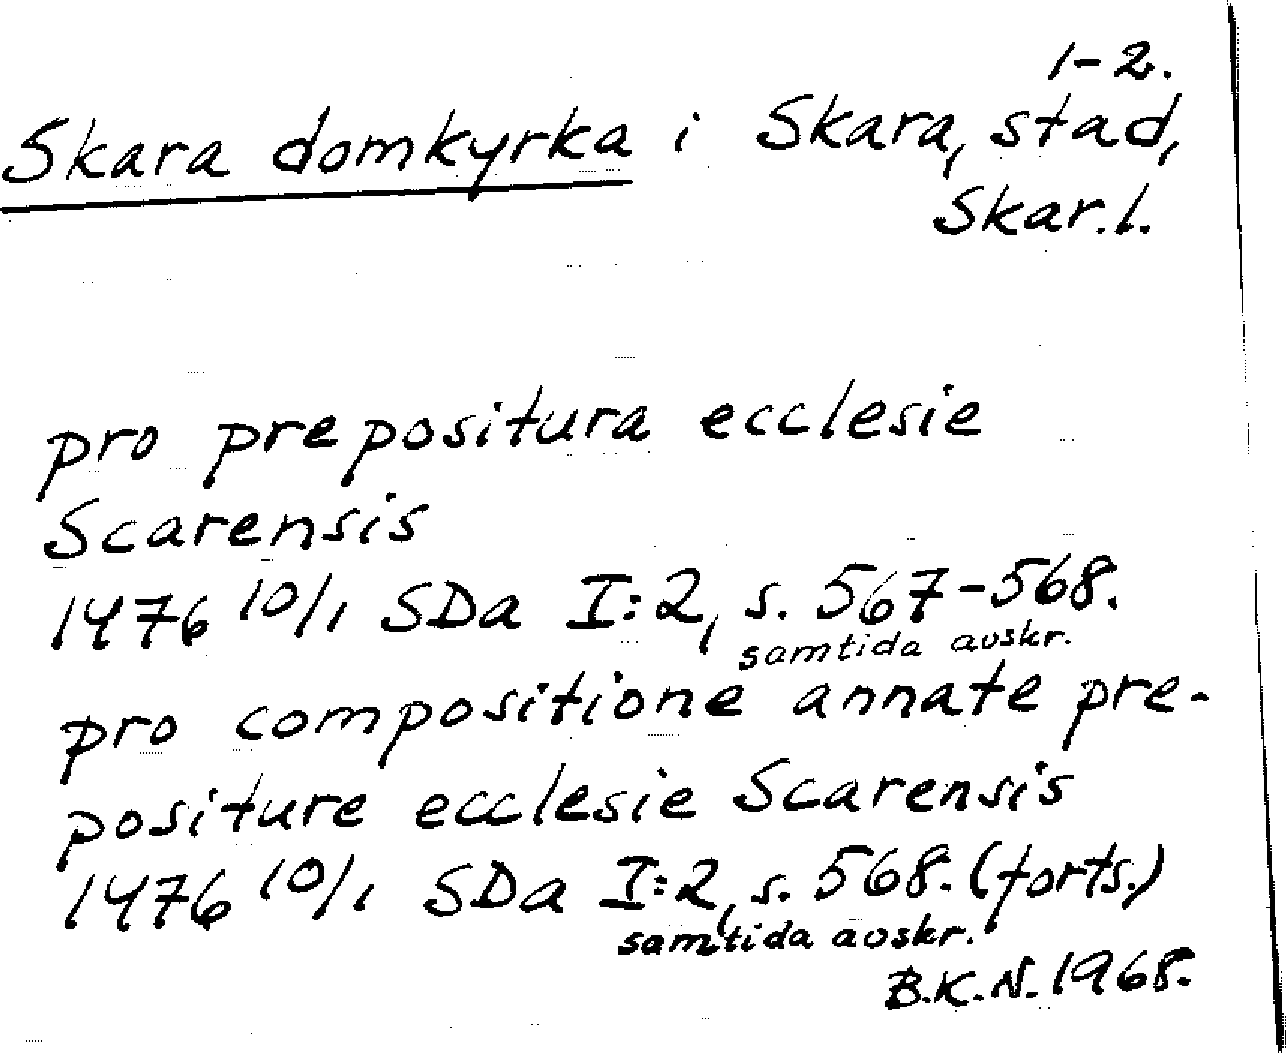 1-2.
Skara domkyrka i Skara, stad,
Skar.l.
pro prepositura ecclesie
Scarensis
1476 10/1 SDa I:2, s. 567-568.
samtida avskr.
pro compositione annate pre-
positure ecclesie Scarensis
1476 10/1 SDa I:2, s. 568. (forts.)
samtida avskr.
B.K.N. 1968.